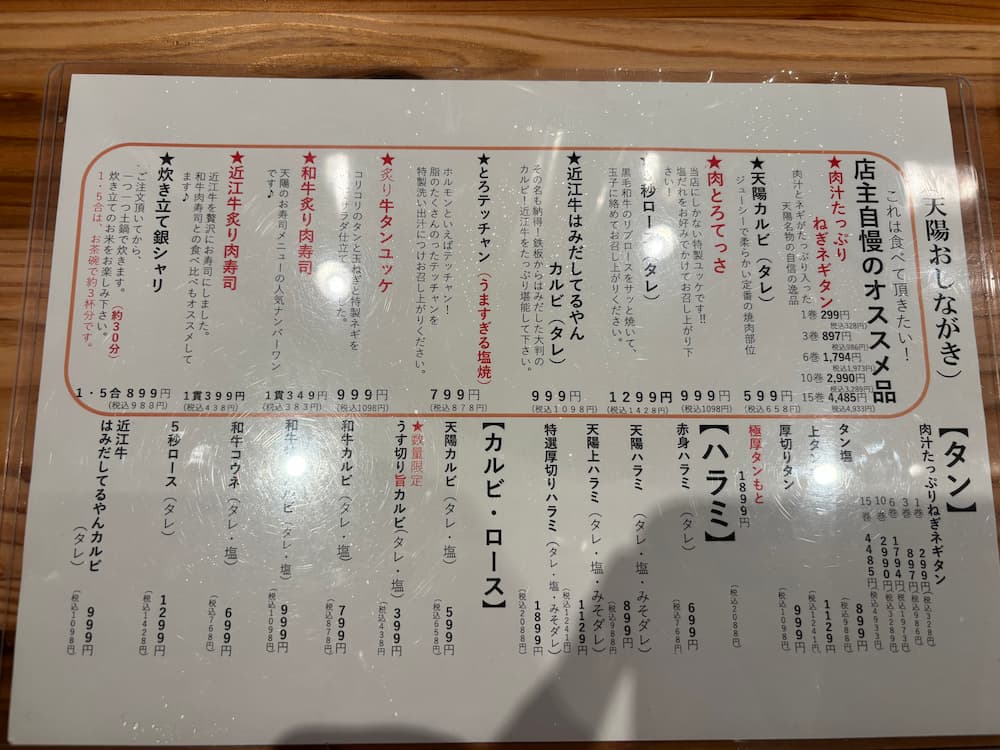 天陽おしながき）
これは食べて頂きたい！
店主自慢のオススメ品
★肉汁たっぷり
ねぎネギタン
肉汁とネギがたっぷり入った
天陽名物の自信の逸品
1巻 299円
税込328円
3巻 897円
税込986円
6巻 1,794円
税込1,973円
10巻 2,990円
税込3,289円
15巻 4,485円
税込4,933円
★天陽カルビ（タレ）
ジューシーで柔らかい定番の焼肉部位
599円
（税込658円）
★肉とろてっさ
当店にしかない特製ユッケです!!
塩だれをお好みでかけてお召し上がり下
さい！
999円
（税込1098円）
秒ロース（タレ）
黒毛和牛のリブロースをサッと焼いて、
玉子に絡めてお召し上がりください。
1299円
（税込1428円）
★近江牛はみだしてるやん
カルビ（タレ）
その名も納得！鉄板からはみだした大判の
カルビ！近江牛をたっぷり堪能して下さい。
999円
（税込1098円）
★とろテッチャン（うますぎる塩焼）
ホルモンといえばテッチャン！
脂のたくさんのったテッチャンを
特製洗い出汁につけお召し上がりください。
799円
（税込878円）
★炙り牛タンユッケ
コリコリのタンと玉ねぎと特製ネギを
サラダ仕立て
した。
999円
（税込1098円）
★和牛炙り肉寿司
天陽のお寿司メニューの人気ナンバーワン
です♪
1貫349円
（税込383円）
★近江牛炙り肉寿司
近江牛を贅沢にお寿司にしました。
和牛肉寿司との食べ比べもオススメして
ます♪
1貫399円
（税込438円）
★炊き立て銀シャリ
ご注文頂いてから、
一つ一つ土鍋で炊きます。（約30分）
炊き立てのお米をお楽しみ下さい。
1・5合は、お茶碗で約3杯分です。
1・5合899円
（税込988円）
【タン】
肉汁たっぷりねぎネギタン
1巻 299円（税込328円）
3巻 897円（税込986円）
6巻 1794円（税込1973円）
10巻 2990円（税込3289円）
15巻 4485円（税込4933円）
タン塩 899円
（税込988円）
上タン 1129円
（税込1241円）
厚切りタン 999円
（税込1098円）
極厚タンもと 1899円
（税込2088円）
【ハラミ】
赤身ハラミ（タレ） 699円
（税込768円）
天陽ハラミ（タレ・塩・みそダレ） 899円
（税込988円）
天陽上ハラミ（タレ・塩・みそダレ） 1129円
（税込1241円）
特選厚切りハラミ（タレ・塩・みそダレ） 1899円
（税込2088円）
【カルビ・ロース】
天陽カルビ（タレ） 599円
（税込658円）
★数量限定
うす切り旨カルビ（タレ・塩） 399円
（税込438円）
和牛カルビ（タレ・塩） 799円
（税込878円）
和牛 ビ（タレ・塩） 999円
（税込1098円）
和牛コウネ（タレ・塩） 699円
（税込768円）
5秒ロース（タレ） 1299円
（税込1428円）
近江牛
はみだしてるやんカルビ
（タレ） 999円
（税込1098円）